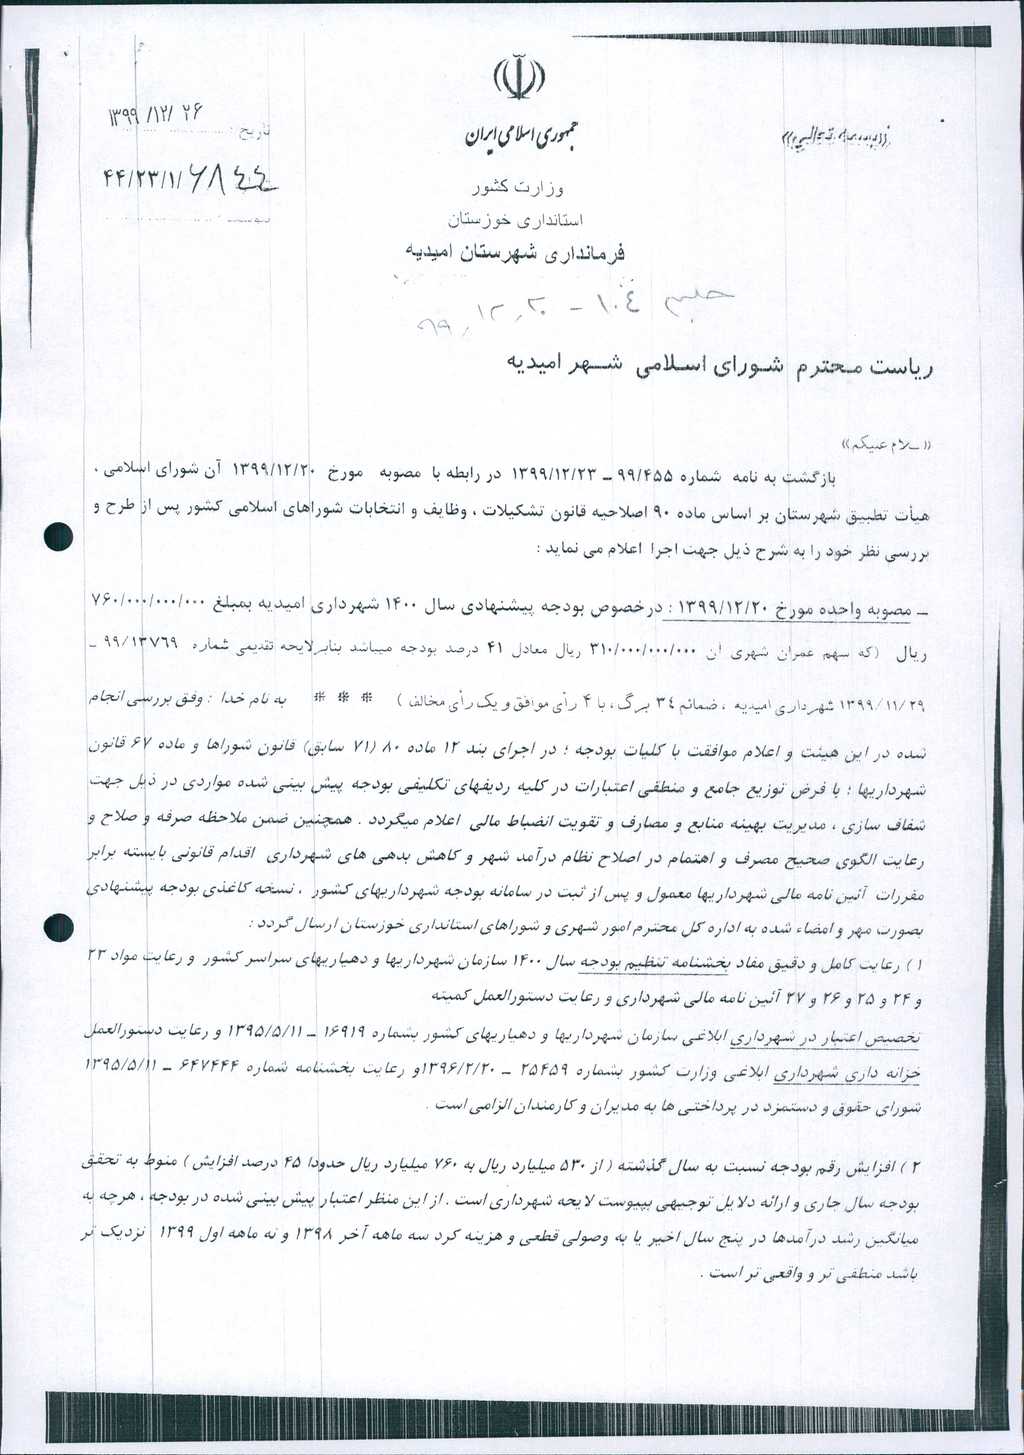 «بسمه تعالی»
جمهوری اسلامی ایران
وزارت کشور
استانداری خوزستان
فرمانداری شهرستان امیدیه
تاریخ: ۱۳۹۹/۱۲/۲۶
۴۴/۲۳/۱/۶۸۴۴
پیوست:
جلسه ۱۰۴ - ۹۹,۱۲,۲۰
ریاست محترم شورای اسلامی شهر امیدیه
«سلام علیکم»
بازگشت به نامه شماره ۹۹/۴۵۵ ـ ۱۳۹۹/۱۲/۲۳ در رابطه با مصوبه مورخ ۱۳۹۹/۱۲/۲۰ آن شورای اسلامی ،
هیأت تطبیق شهرستان بر اساس ماده ۹۰ اصلاحیه قانون تشکیلات ، وظایف و انتخابات شوراهای اسلامی کشور پس از طرح و
بررسی نظر خود را به شرح ذیل جهت اجرا اعلام می نماید :
ـ مصوبه واحده مورخ ۱۳۹۹/۱۲/۲۰ : درخصوص بودجه پیشنهادی سال ۱۴۰۰ شهرداری امیدیه بمبلغ ۷۶۰/۰۰۰/۰۰۰/۰۰۰
ریال (که سهم عمران شهری آن ۳۱۰/۰۰۰/۰۰۰/۰۰۰ ریال معادل ۴۱ درصد بودجه میباشد بنابر لایحه تقدیمی شماره ۹۹/۱۳۷۶۹ ـ
۱۳۹۹/۱۱/۲۹ شهرداری امیدیه ، ضمائم ۳۴ برگ ، با ۴ رأی موافق و یک رأی مخالف ) * * * به نام خدا : وفق بررسی انجام
شده در این هیئت و اعلام موافقت با کلیات بودجه ؛ در اجرای بند ۱۲ ماده ۸۰ (۷۱ سابق) قانون شوراها و ماده ۶۷ قانون
شهرداریها ؛ با فرض توزیع جامع و منطقی اعتبارات در کلیه ردیفهای تکلیفی بودجه پیش بینی شده مواردی در ذیل جهت
شفاف سازی ، مدیریت بهینه منابع و مصارف و تقویت انضباط مالی اعلام میگردد . همچنین ضمن ملاحظه صرفه و صلاح و
رعایت الگوی صحیح مصرف و اهتمام در اصلاح نظام درآمد شهر و کاهش بدهی های شهرداری اقدام قانونی بایسته برابر
مقررات آئین نامه مالی شهرداریها معمول و پس از ثبت در سامانه بودجه شهرداریهای کشور ، نسخه کاغذی بودجه پیشنهادی
بصورت مهر و امضاء شده به اداره کل محترم امور شهری و شوراهای استانداری خوزستان ارسال گردد :
۱ ) رعایت کامل و دقیق مفاد بخشنامه تنظیم بودجه سال ۱۴۰۰ سازمان شهرداریها و دهیاریهای سراسر کشور و رعایت مواد ۲۳
و ۲۴ و ۲۵ و ۲۶ و ۲۷ آئین نامه مالی شهرداری و رعایت دستورالعمل کمیته
تخصیص اعتبار در شهرداری ابلاغی سازمان شهرداریها و دهیاریهای کشور بشماره ۱۶۹۱۹ ـ ۱۳۹۵/۵/۱۱ و رعایت دستورالعمل
خزانه داری شهرداری ابلاغی وزارت کشور بشماره ۲۵۴۵۹ ـ ۱۳۹۶/۲/۲۰و رعایت بخشنامه شماره ۶۴۷۴۴۴ ـ ۱۳۹۵/۵/۱۱
شورای حقوق و دستمزد در پرداختی ها به مدیران و کارمندان الزامی است .
۲ ) افزایش رقم بودجه نسبت به سال گذشته ( از ۵۳۰ میلیارد ریال به ۷۶۰ میلیارد ریال حدودا ۴۵ درصد افزایش ) منوط به تحقق
بودجه سال جاری و ارائه دلایل توجیهی بپیوست لایحه شهرداری است . از این منظر اعتبار پیش بینی شده در بودجه ، هرچه به
میانگین رشد درآمدها در پنج سال اخیر یا به وصولی قطعی و هزینه کرد سه ماهه آخر ۱۳۹۸ و نه ماهه اول ۱۳۹۹ نزدیک تر
باشد منطقی تر و واقعی تر است .